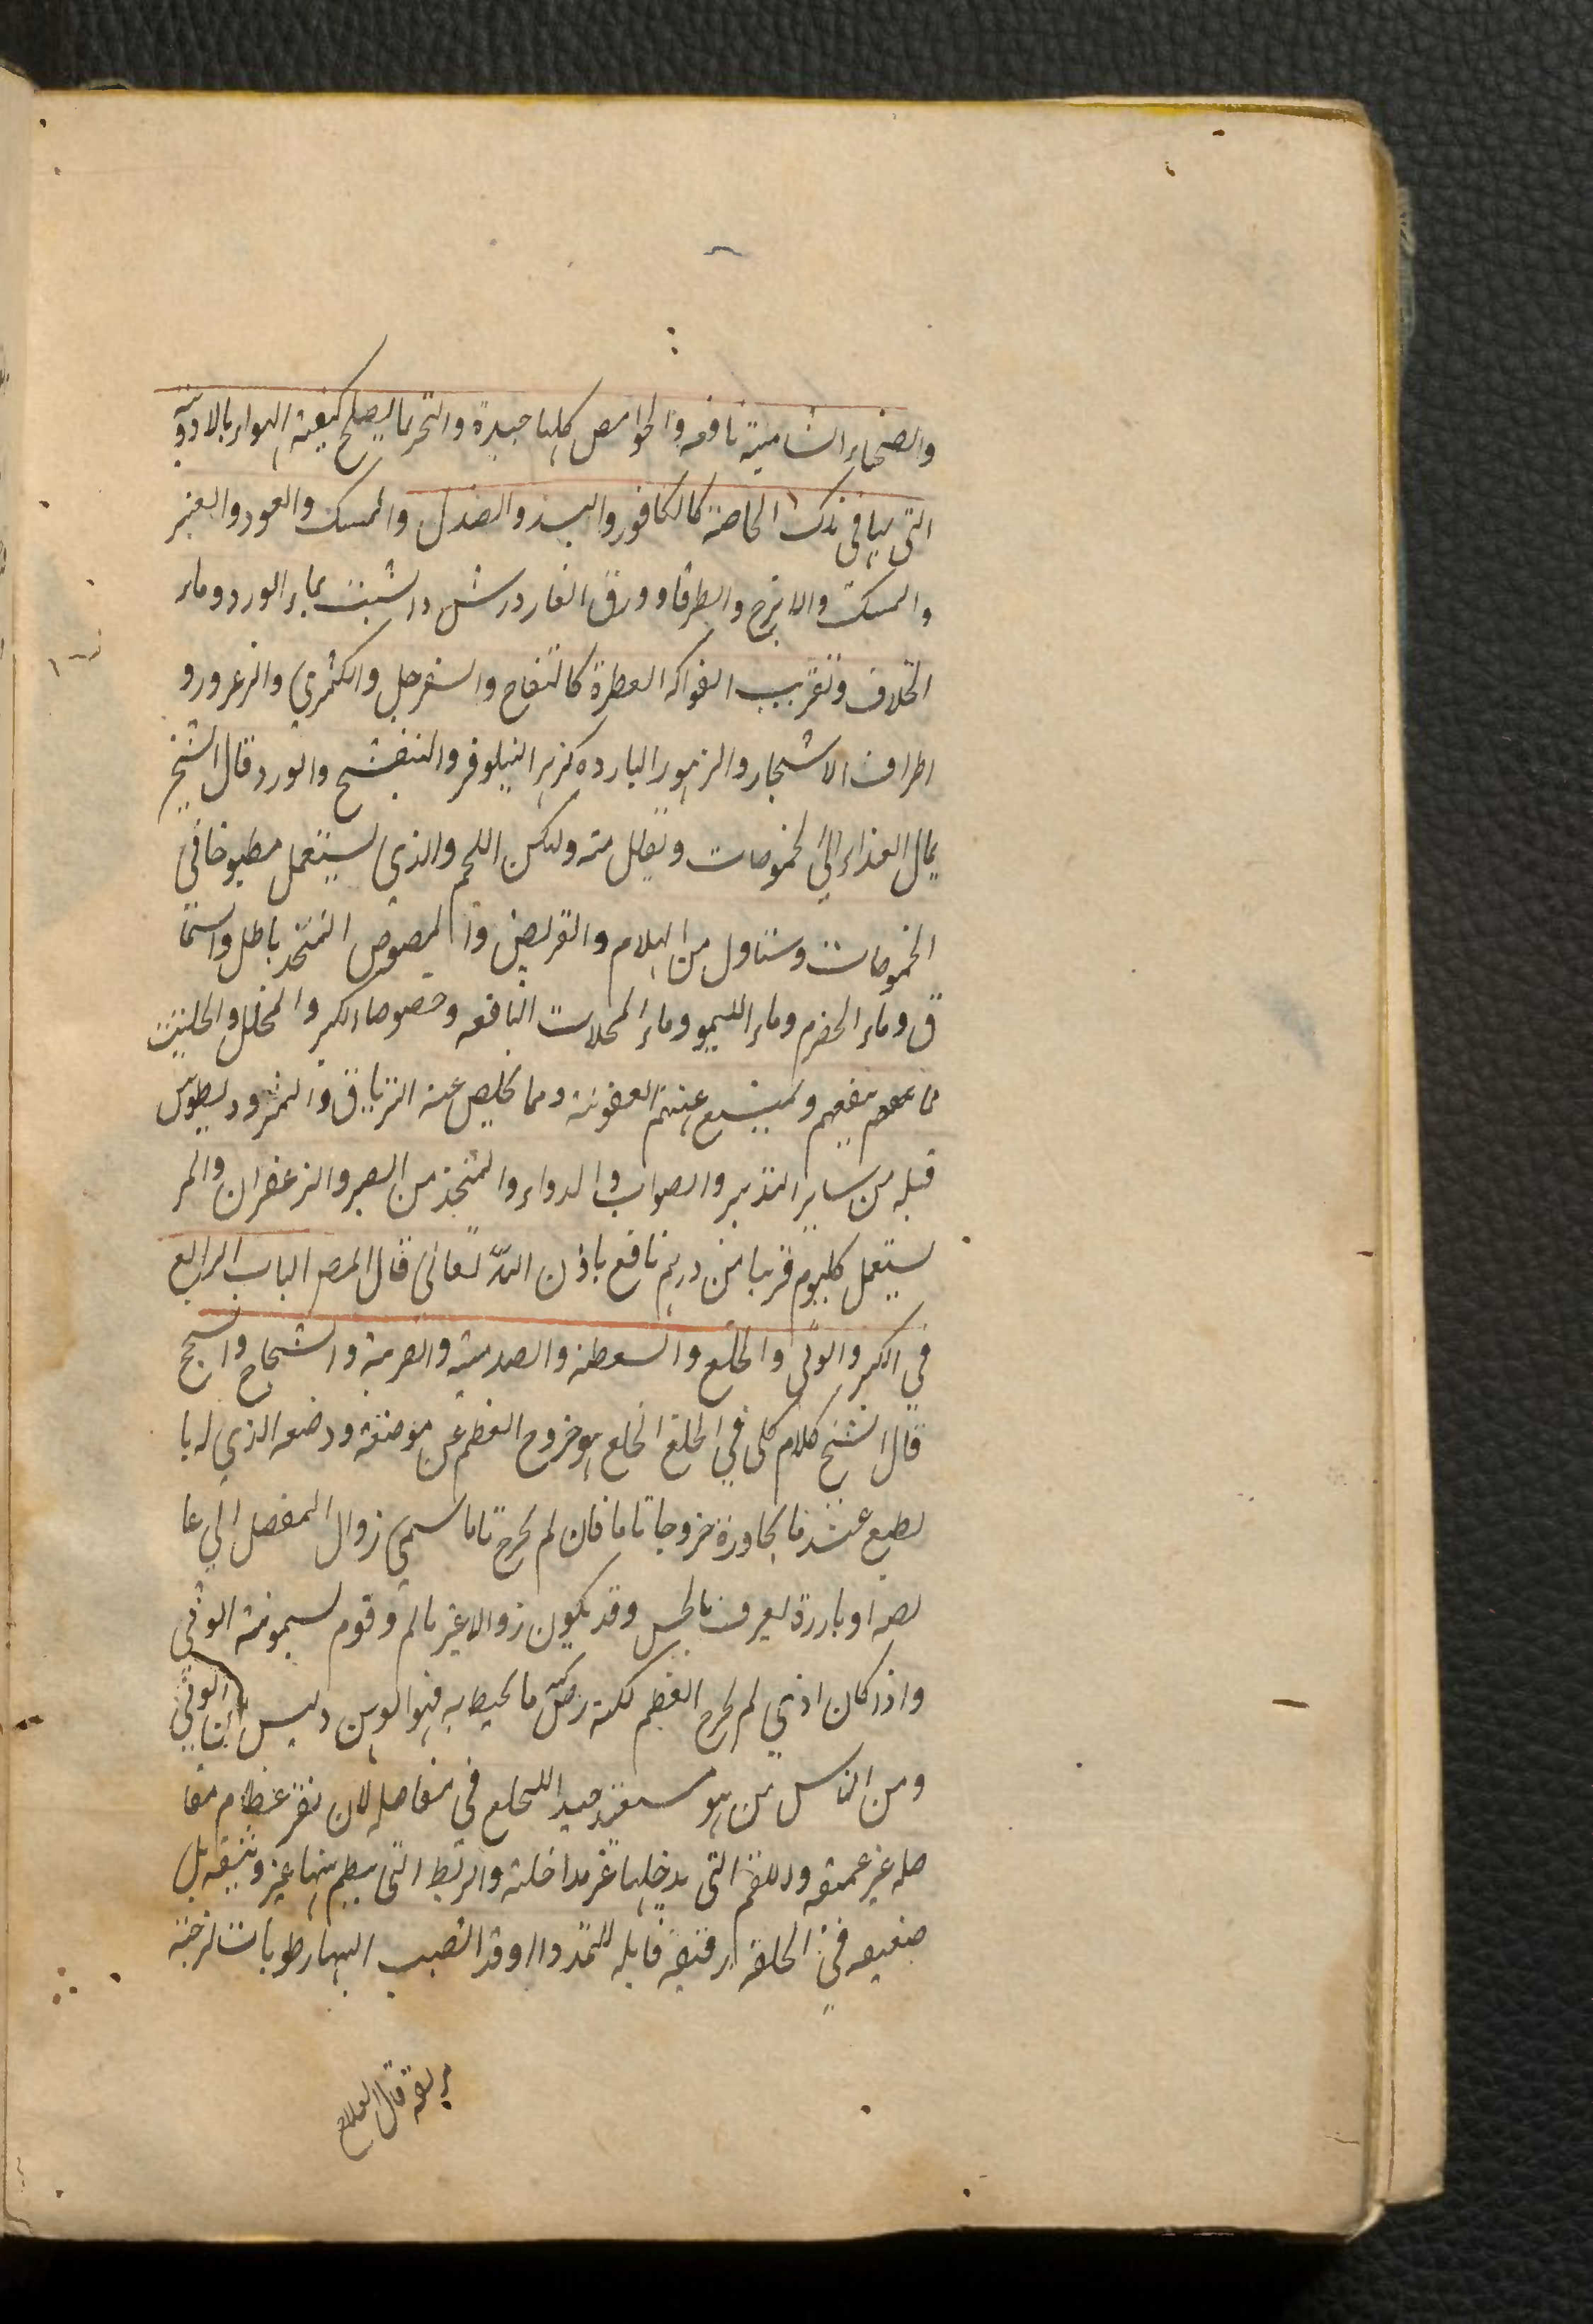 والصحناء الشامية نافعه والحوامض كلها جيدة والتحر بما يصلح كيفية الهواء بالادوية
التى ينافى ذلك الخاصة كالكافور والسذ والصندل والمسك والعود والعنبر
والمسك والاترج والطرفا وورق الغار درشش دار شبت بماء الورد وماء
الخلاف وتقريب الفواكه العطرة كالتفاح والسفرجل والكمثرى والزعرور و
اطراف الاشجار والزهور البارده كزهر النيلوفر والبنفشج والورد قال الشيخ
يمال الغذاء الى الحموضات ويقلل منه وليكن اللحم والذي يستعمل مطبوخا في
الحموضات وتناول من الهلام والقريص والمصوص المتخذ باطل والسما
ق وماء الحصرم وماء الليمو وماء المخللات النافعه وخصوصا الكبر والمخلل والحلتيت
مما ينفعهم ويمنع عنهم العفونة ومما يخلص عنه الترياق والمثرودیطوس
قبله من ساير التدبير والصواب والدواء والمتخذ من الصبر والزعفران والمر
يستعمل كليوم قريبا من درهم نافع باذن الله تعالى قال المص الباب الرابع
في الكسر والوثى والخلع والسقطة والصدمة والضربة والشجاج والسحج
قال الشيخ كلام كلى في الخلع الخلع هو خروج العظم عن موضعه ووضعه الذي له با
لطبع عند مايجاوره خروجا تاما فان لم يخرج تاما سمي زوال المفصل الى غا
يصه او بارزة يعرف بالحس وقد يكون زوالا غير تام وقوم يسمونه الوثى
واذا كان اذى لم يخرج العظم لكنه رض ما يحيط به فهو الوهن وليس الوثى
ومن الناس من هو مستعد جيدا للخلع في مفاصله لان نقر عظام مفا
صله غير عميقه وللقم التى يدخلها غر مداخلة والربط التى ينظم بينها غير وثيقه بل
ضعيفه في الخلقة رقيقه قابله للتمدد او قد انصبب اليها رطوبات لزجة
مزلقه قال العلاج